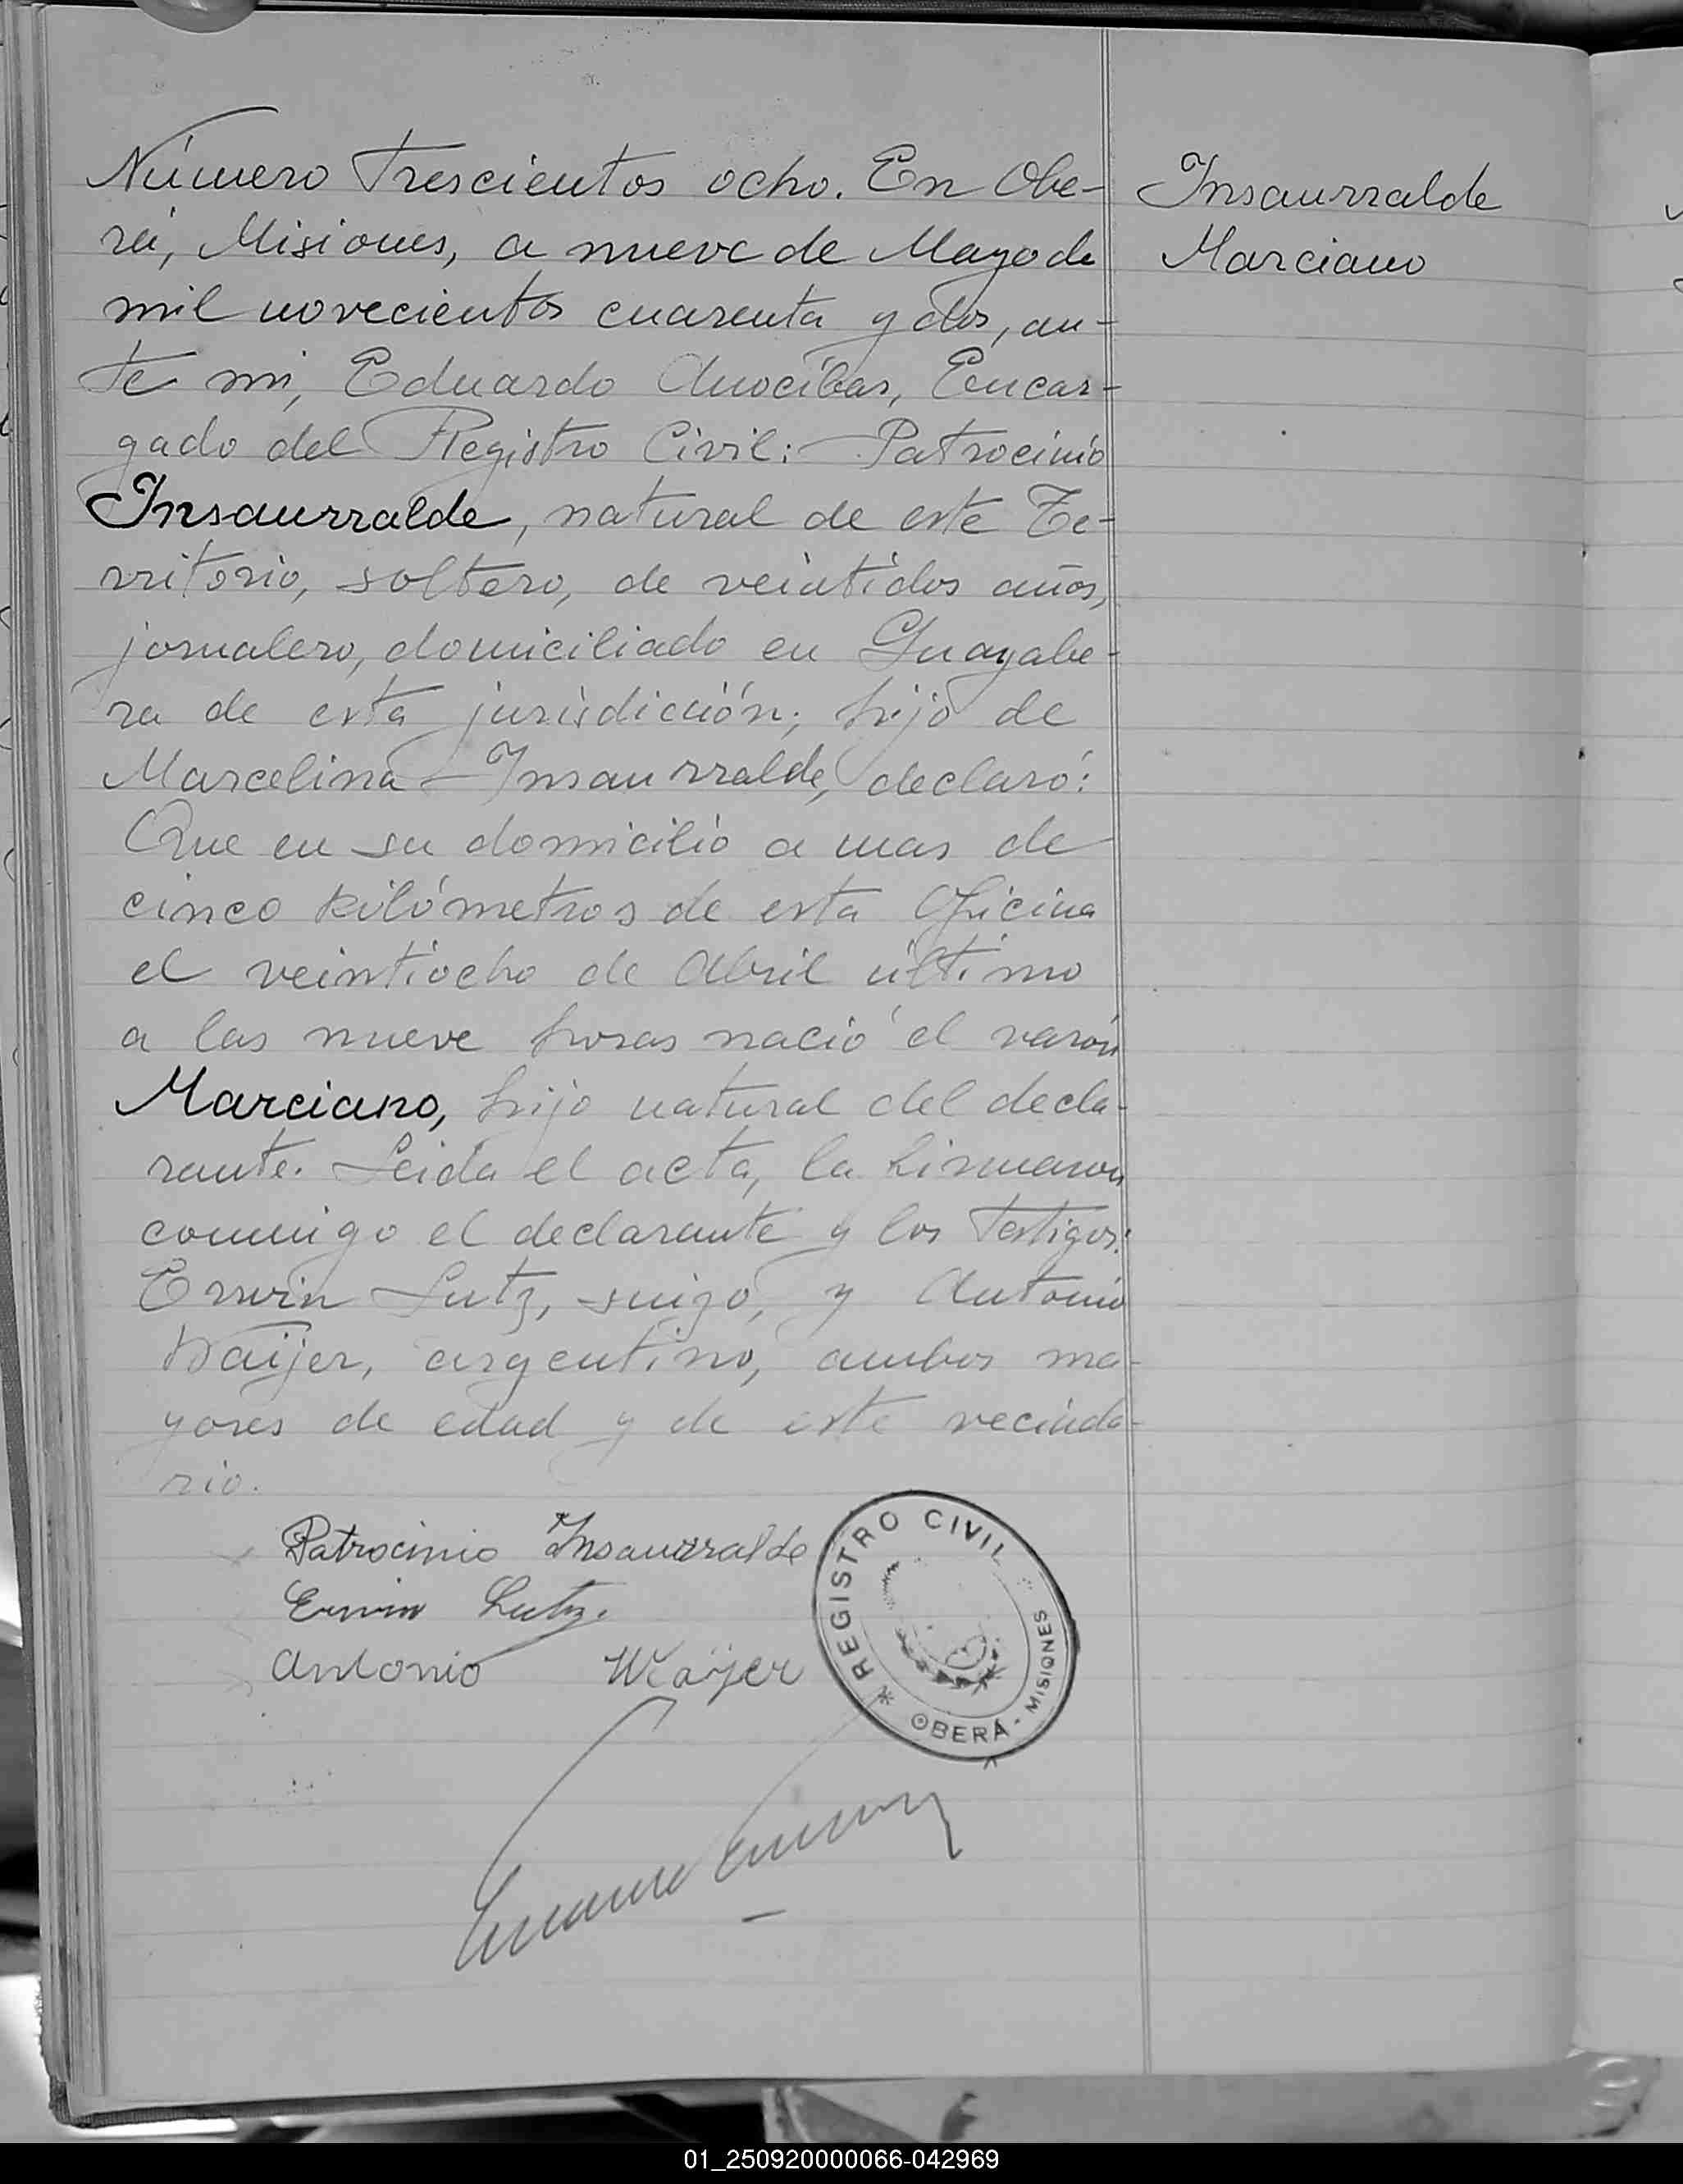 Número Trescientos ocho. En Obe-
rá, Misiones, a nueve de Mayo de
mil novecientos cuarenta y dos, an-
te mi, Eduardo Anocíbar, Encar-
gado del Registro Civil: Patrocinio
Insaurralde, natural de este Te-
rritorio, soltero, de veintidos años,
jornalero, domiciliado en Guayabe-
ra de esta jurisdicción; hijo de
Marcelina Insaurralde, declaró:
Que en su domicilio a mas de
cinco kilómetros de esta Oficina
el veintiocho de Abril último
a las nueve horas nació el varón
Marciano, hijo natural del decla-
rante. Leida el acta, la firmaron
conmigo el declarante y los testigos:
Erwin Lutz, suizo, y Antonio
Waijer, argentino, ambos ma-
yores de edad y de este vecinda-
rio.
Insaurralde
Marciano
Patrocinio Insaurralde
Erwin Lutz.
Antonio Waijer
REGISTRO CIVIL
OBERÁ - MISIONES
01_250920000066-042969